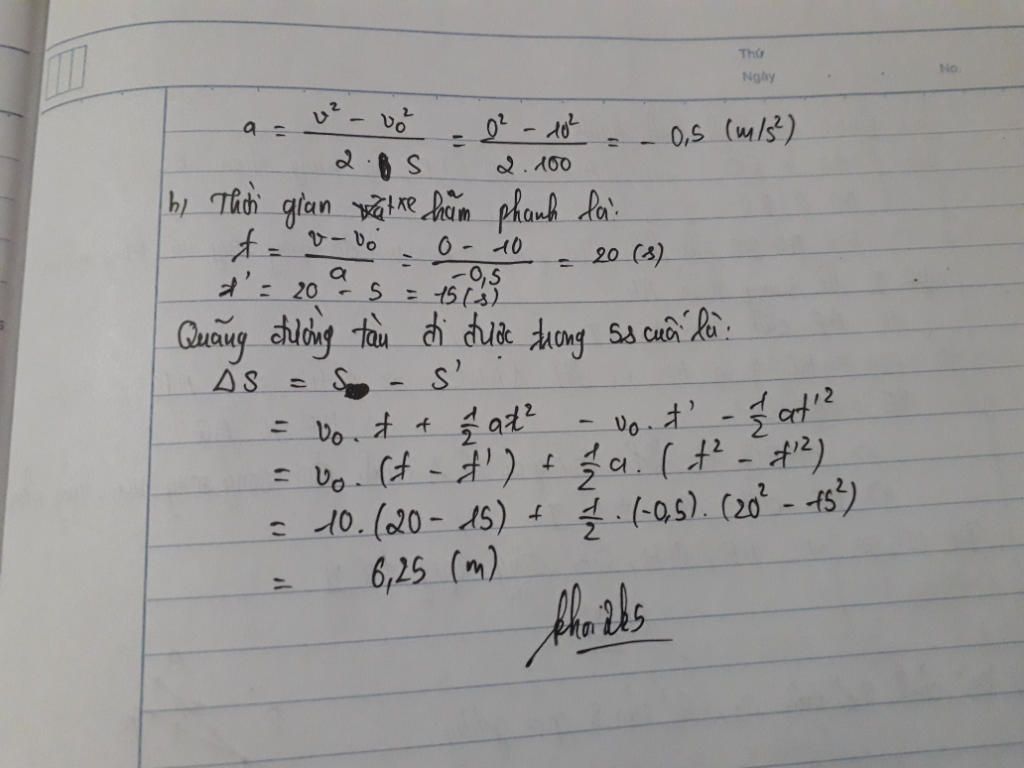 Thứ
Ngày
No.
a = (v² - v₀²)/(2 . S) = (0² - 10²)/(2 . 100) = - 0,5 (m/s²)
b, Thời gian xe hãm phanh là:
t = (v - v₀)/a = (0 - 10)/(-0,5) = 20 (s)
t' = 20 - 5 = 15 (s)
Quãng đường tàu đi được trong 5s cuối là:
ΔS = S - S'
= v₀ . t + 1/2 at² - v₀ . t' - 1/2 at'²
= v₀ . (t - t') + 1/2 a . (t² - t'²)
= 10 . (20 - 15) + 1/2 . (-0,5) . (20² - 15²)
= 6,25 (m)
khoi2k5